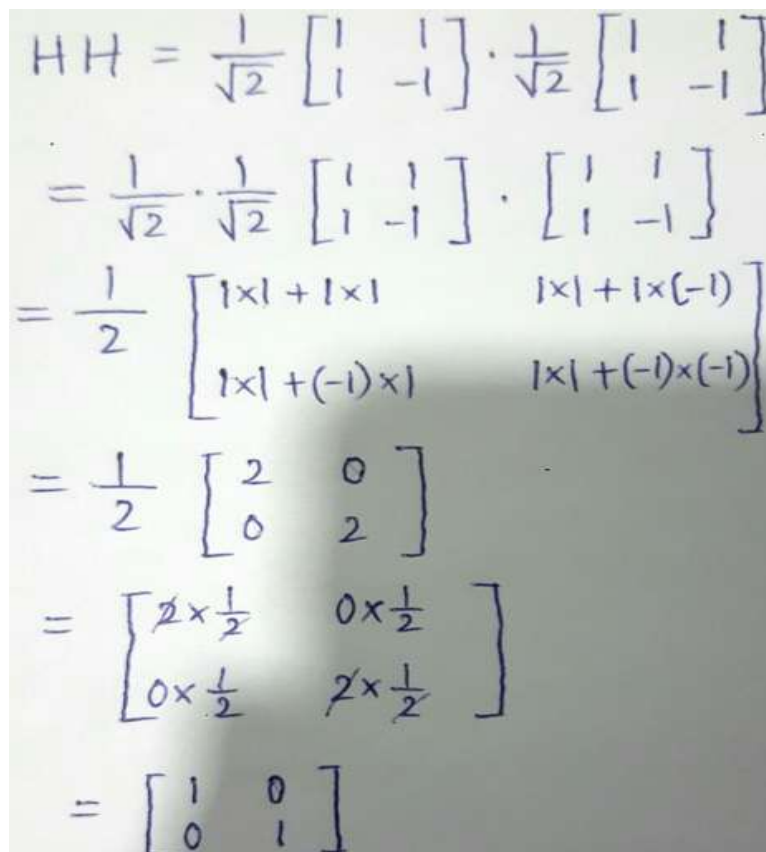 HH = \frac{1}{\sqrt{2}} \begin{bmatrix} 1 & 1 \\ 1 & -1 \end{bmatrix} \cdot \frac{1}{\sqrt{2}} \begin{bmatrix} 1 & 1 \\ 1 & -1 \end{bmatrix}
= \frac{1}{\sqrt{2}} \cdot \frac{1}{\sqrt{2}} \begin{bmatrix} 1 & 1 \\ 1 & -1 \end{bmatrix} \cdot \begin{bmatrix} 1 & 1 \\ 1 & -1 \end{bmatrix}
= \frac{1}{2} \begin{bmatrix} 1×1 + 1×1 & 1×1 + 1×(-1) \\ 1×1 + (-1)×1 & 1×1 + (-1)×(-1) \end{bmatrix}
= \frac{1}{2} \begin{bmatrix} 2 & 0 \\ 0 & 2 \end{bmatrix}
= \begin{bmatrix} \cancel{2}×\frac{1}{\cancel{2}} & 0×\frac{1}{2} \\ 0×\frac{1}{2} & \cancel{2}×\frac{1}{\cancel{2}} \end{bmatrix}
= \begin{bmatrix} 1 & 0 \\ 0 & 1 \end{bmatrix}